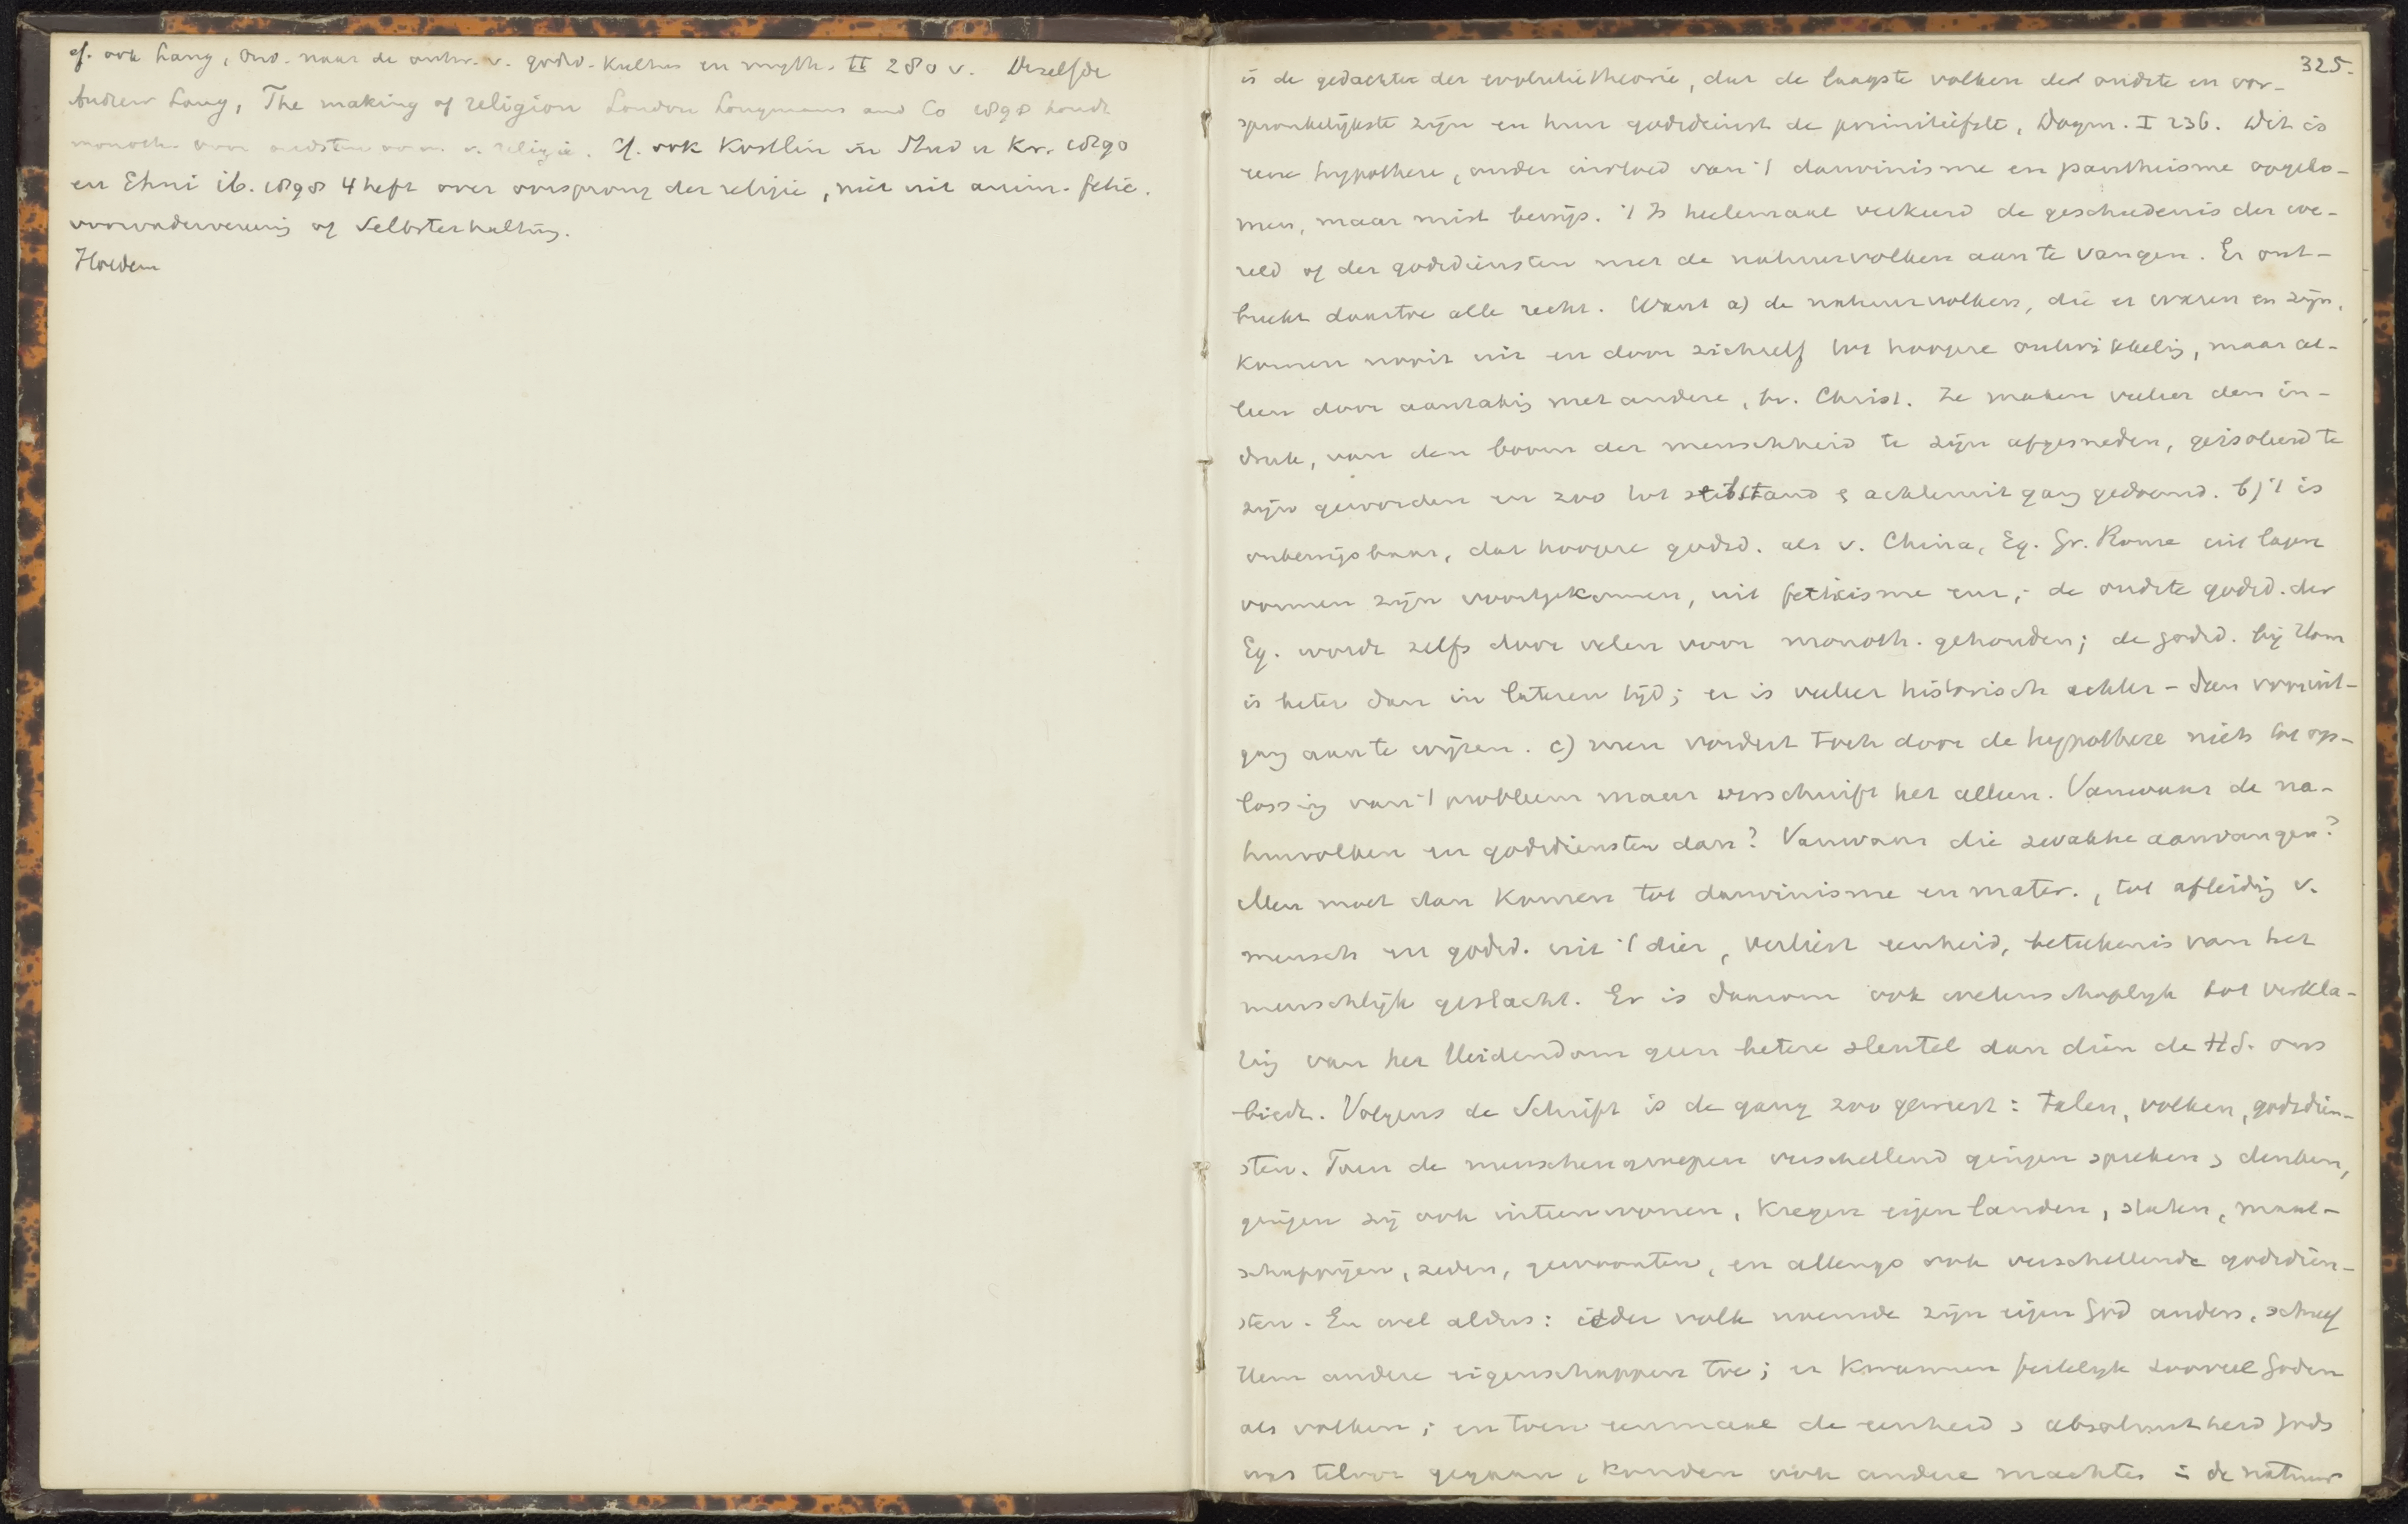 cf. ook Lang, Ond. naar de ontw. v. godsd. Kultus en myth. II 280 v. Dezelfde
Andrew Lang, The making of religion London Longmans and Co 1898 houdt
monoth. voor oudsten vorm v. religie. Cf. ook Kostlin in Stud u Kr. 1890
en Ehni ib. 1898 4 heft over oorsprong der religie, niet uit anim. fetic.
voorvaderverering of Selbsterhaltung.
Heiden
325.
is de gedachte der evolutietheorie, dat de laagste volken de oudste en oor-
spronkelijkste zijn en hun godsdienst de primitiefste, Dogm. I 236. Dit is
eene hypothese, onder invloed van 't darwinisme en pantheisme opgeko-
men, maar mist bewijs. 't Is heelemaal verkeerd de geschiedenis der we-
reld of der godsdiensten met de natuurvolken aan te vangen. Er ont-
breekt daartoe alle recht. Want a) de natuurvolken, die er waren en zijn,
komen nooit uit en door zichzelf tot hoogere ontwikkelig, maar al-
leen door aanrakig met andere, bv. Christ. Ze maken veeleer den in-
druk, van den boom der menschheid te zijn afgesneden, geisoleerd te
zijn geworden en zoo tot stilstand & achteruitgang gedoemd. b) 't is
onbewijsbaar, dat hoogere godsd. als v. China, Eg. Gr. Rome uit lagere
vormen zijn voortgekomen, uit fetisisme enz; de oudste godsd. der
Eg. wordt zelfs door velen voor monoth. gehouden; de godsd. bij Hom
is beter dan in lateren tijd; er is veeleer historisch achter- dan vooruit-
gang aan te wijzen. c) men vordert toch door de hypothese niets tot op-
lossing van 't probleem maar verschuift het alleen. Vanwaar de na-
tuurvolken en godsdiensten dan? Vanwaar die zwakke aanvangen?
Men moet dan komen tot darwinisme en mater., tot afleidig v.
mensch en godsd. uit 't dier, verliest eenheid, beteekenis van het
menschlijk geslacht. Er is daarom ook wetenschaplijk tot verkla-
ring van het Heidendom geen betere sleutel dan dien de H.S. ons
biedt. Volgens de Schrift is de gang zoo geweest: talen, volken, godsdien-
sten. Toen de menschengroepen verschillend gingen spreken & denken,
gingen zij ook uiteenwonen, kregen eigen landen, staten, maat-
schappijen, zeden, gewoonten, en allengs ook verschillende godsdien-
sten. En wel aldus: ieder volk noemde zijn eigen God anders, schreef
Hem andere eigenschappen toe; er kwamen feitelijk zooveel Goden
als volken; en toen eenmaal de eenheid & absoluutheid Gods
was teloor gegaan, konden ook andere machten in de natuur